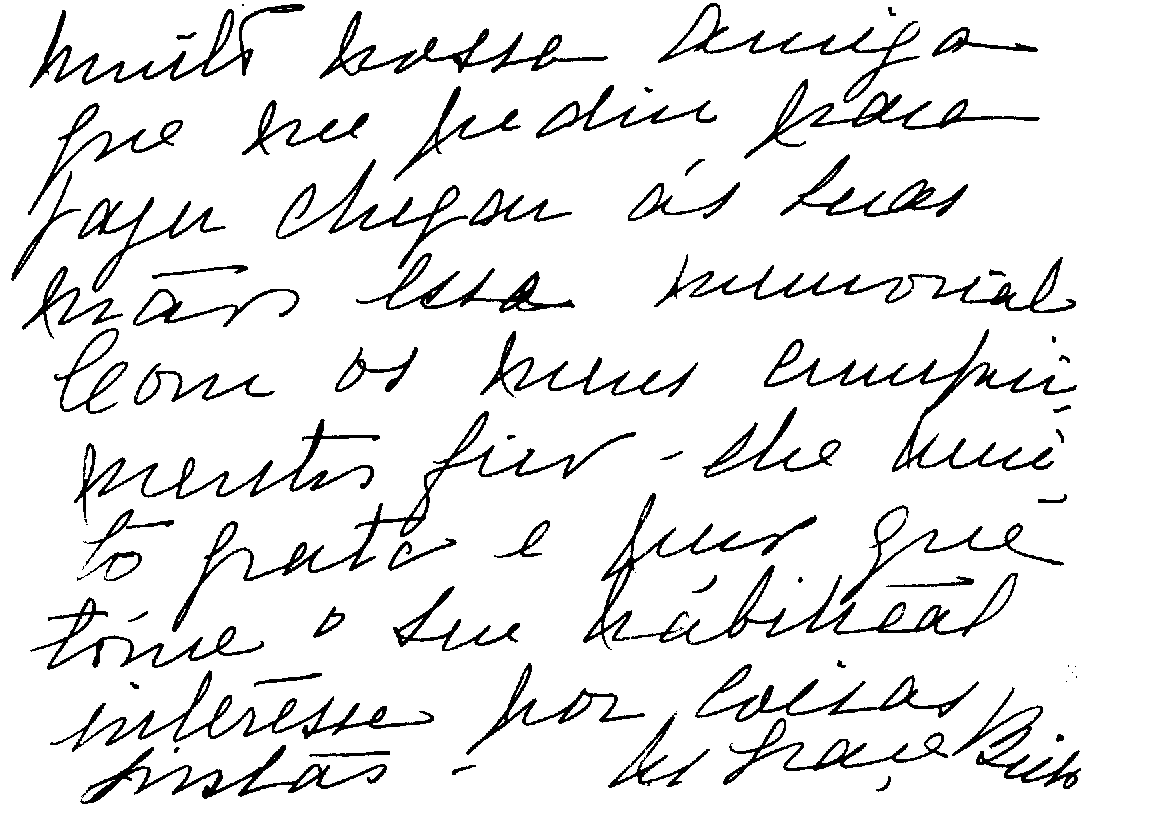 muito nossa amiga
que me pediu para
fazer chegar ás suas
mãos essa memorial
Com os meus cumpri-
mentos fico-lhe mui-
to grata e peço que
tome o seu habitual
interêsse por coisas
justas -